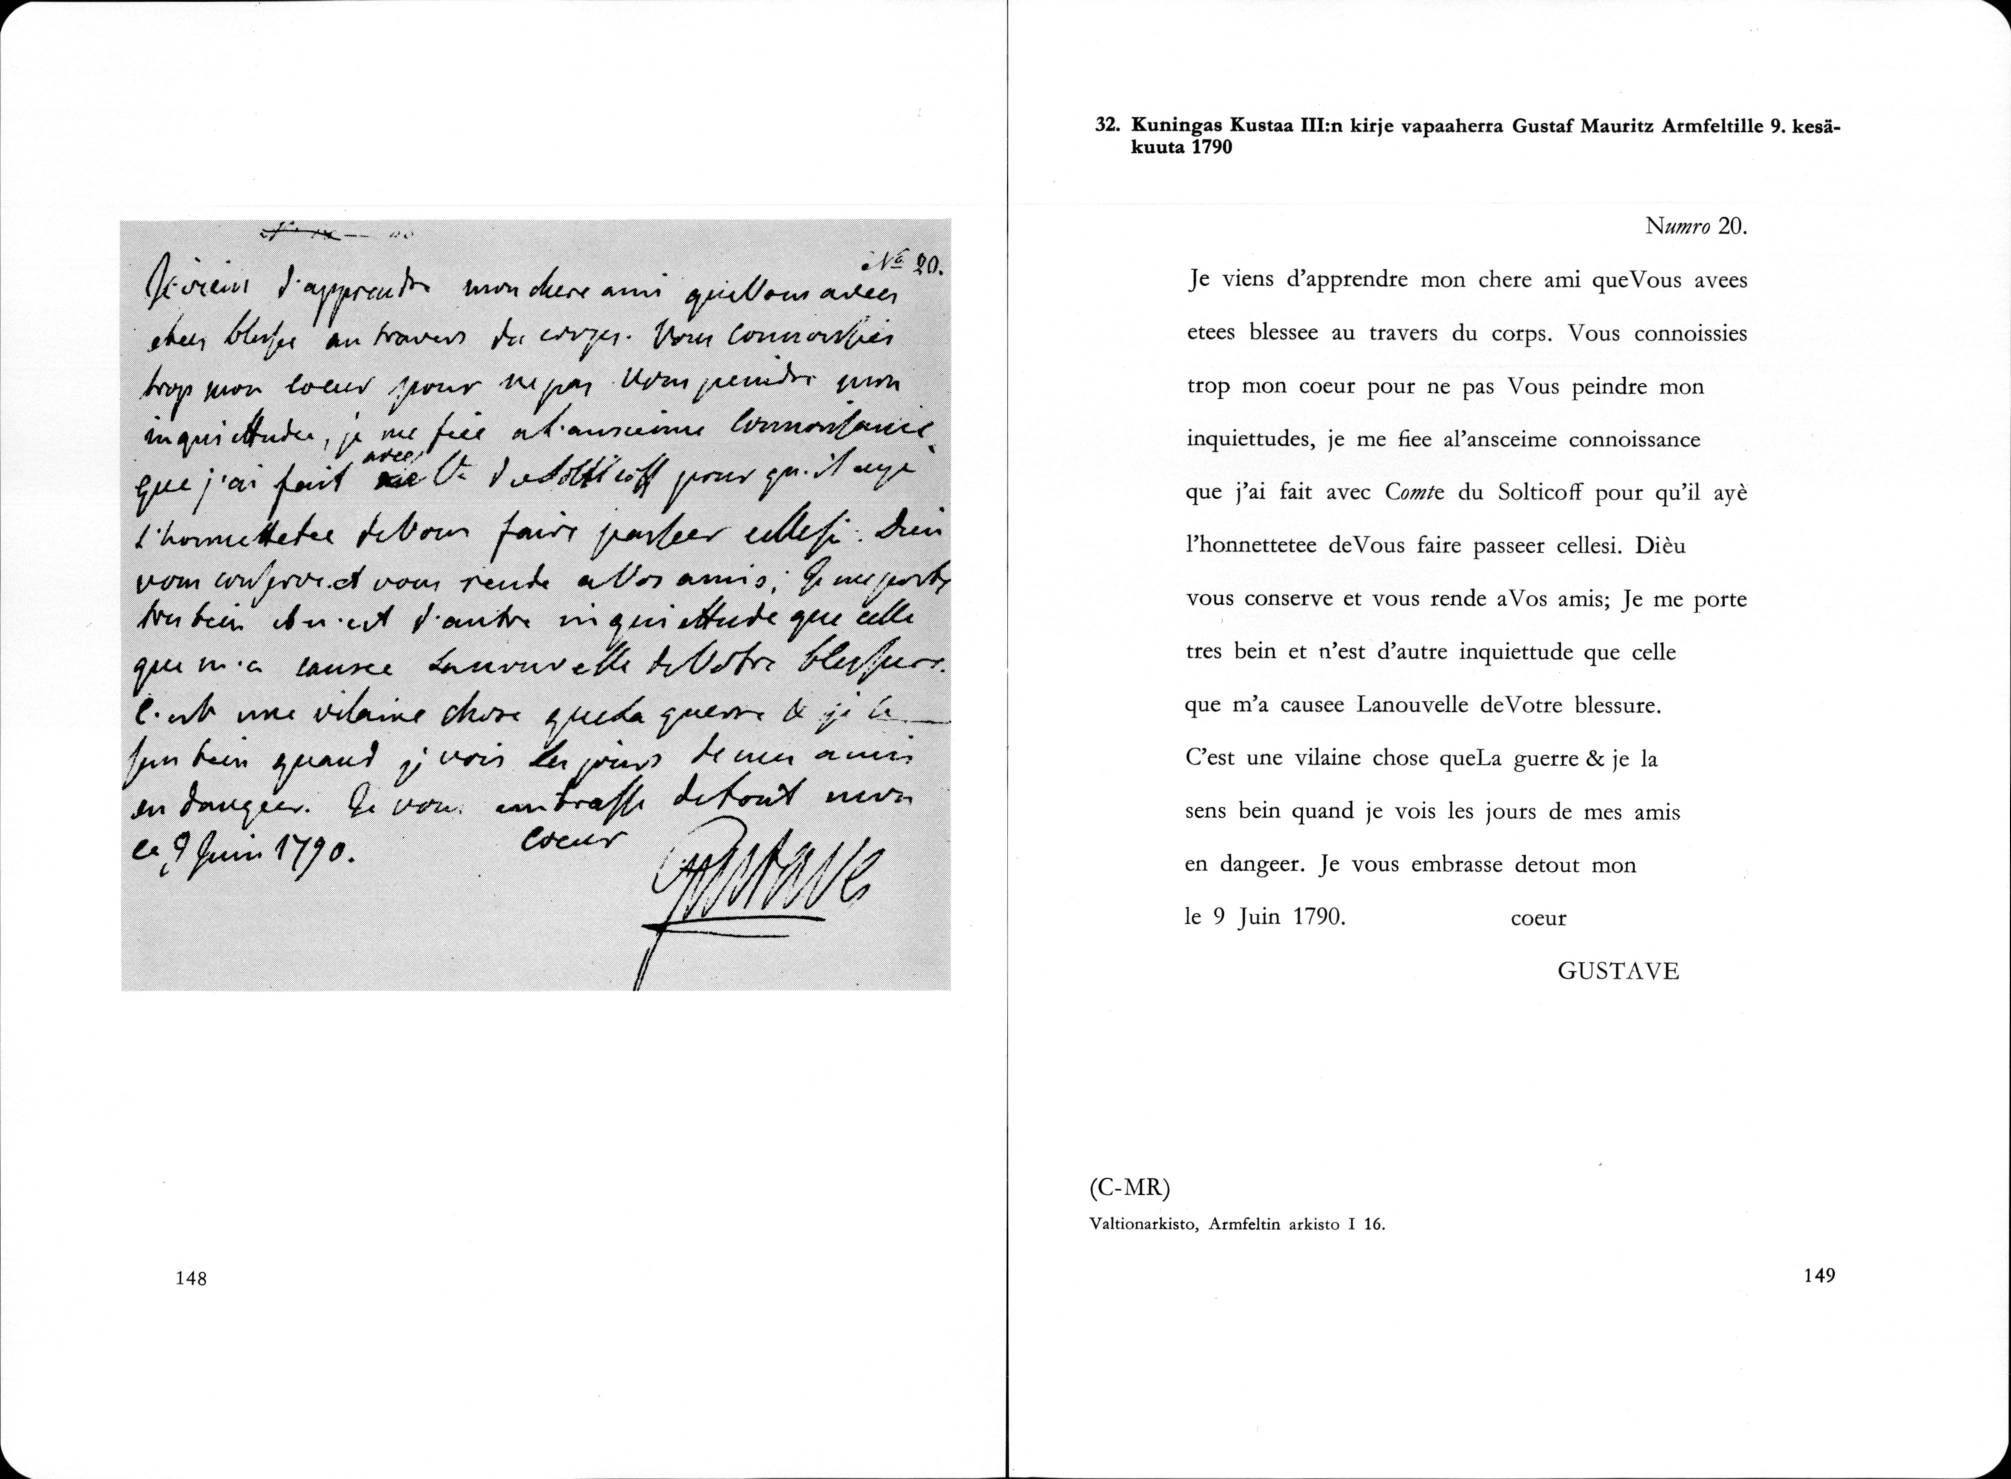 No 20.
Je viens d'apprendre mon chere ami queVous avees
etees blessee au travers du corps. Vous connoissies
trop mon coeur pour ne pas Vous peindre mon
inquiettudes, je me fiee al'ansceime connoissance
que j'ai fait avec Cte du Solticoff pour qu'il ayè
l'honnettetee deVous faire passeer cellesi. Dieu
vous conserve et vous rende aVos amis; Je me porte
tres bein et n'est d'autre inquiettude que celle
que m'a causee Lanouvelle deVotre blessure.
C'est une vilaine chose queLa guerre & je la
sens bein quand je vois les jours de mes amis
en dangeer. Je vous embrasse detout mon
le 9 Juin 1790. coeur
Gustave
148
32. Kuningas Kustaa III:n kirje vapaaherra Gustaf Mauritz Armfeltille 9. kesä-
kuuta 1790
Numro 20.
Je viens d’apprendre mon chere ami queVous avees
etees blessee au travers du corps. Vous connoissies
trop mon coeur pour ne pas Vous peindre mon
inquiettudes, je me fiee al’ansceime connoissance
que j’ai fait avec Comte du Solticoff pour qu’il ayè
l’honnettetee deVous faire passeer cellesi. Dièu
vous conserve et vous rende aVos amis; Je me porte
tres bein et n’est d’autre inquiettude que celle
que m’a causee Lanouvelle deVotre blessure.
C’est une vilaine chose queLa guerre & je la
sens bein quand je vois les jours de mes amis
en dangeer. Je vous embrasse detout mon
le 9 Juin 1790. coeur
GUSTAVE
(C-MR)
Valtionarkisto, Armfeltin arkisto I 16.
149